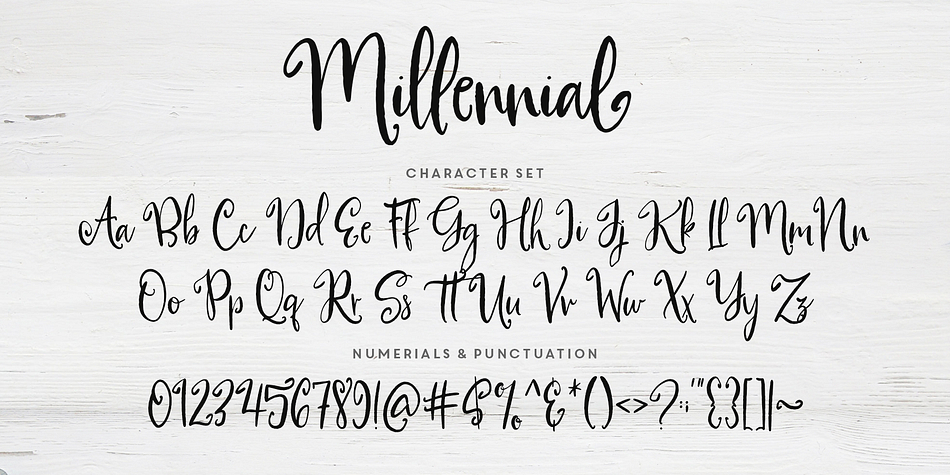 Millennial
CHARACTER SET
Aa Bb Cc Dd Ee Ff Gg Hh Ii Jj Kk Ll Mm Nn
Oo Pp Qq Rr Ss Tt Uu Vv Ww Xx Yy Zz
NUMERIALS & PUNCTUATION
0123456789!@#$%^&*()<>?:;'"{}[]|~